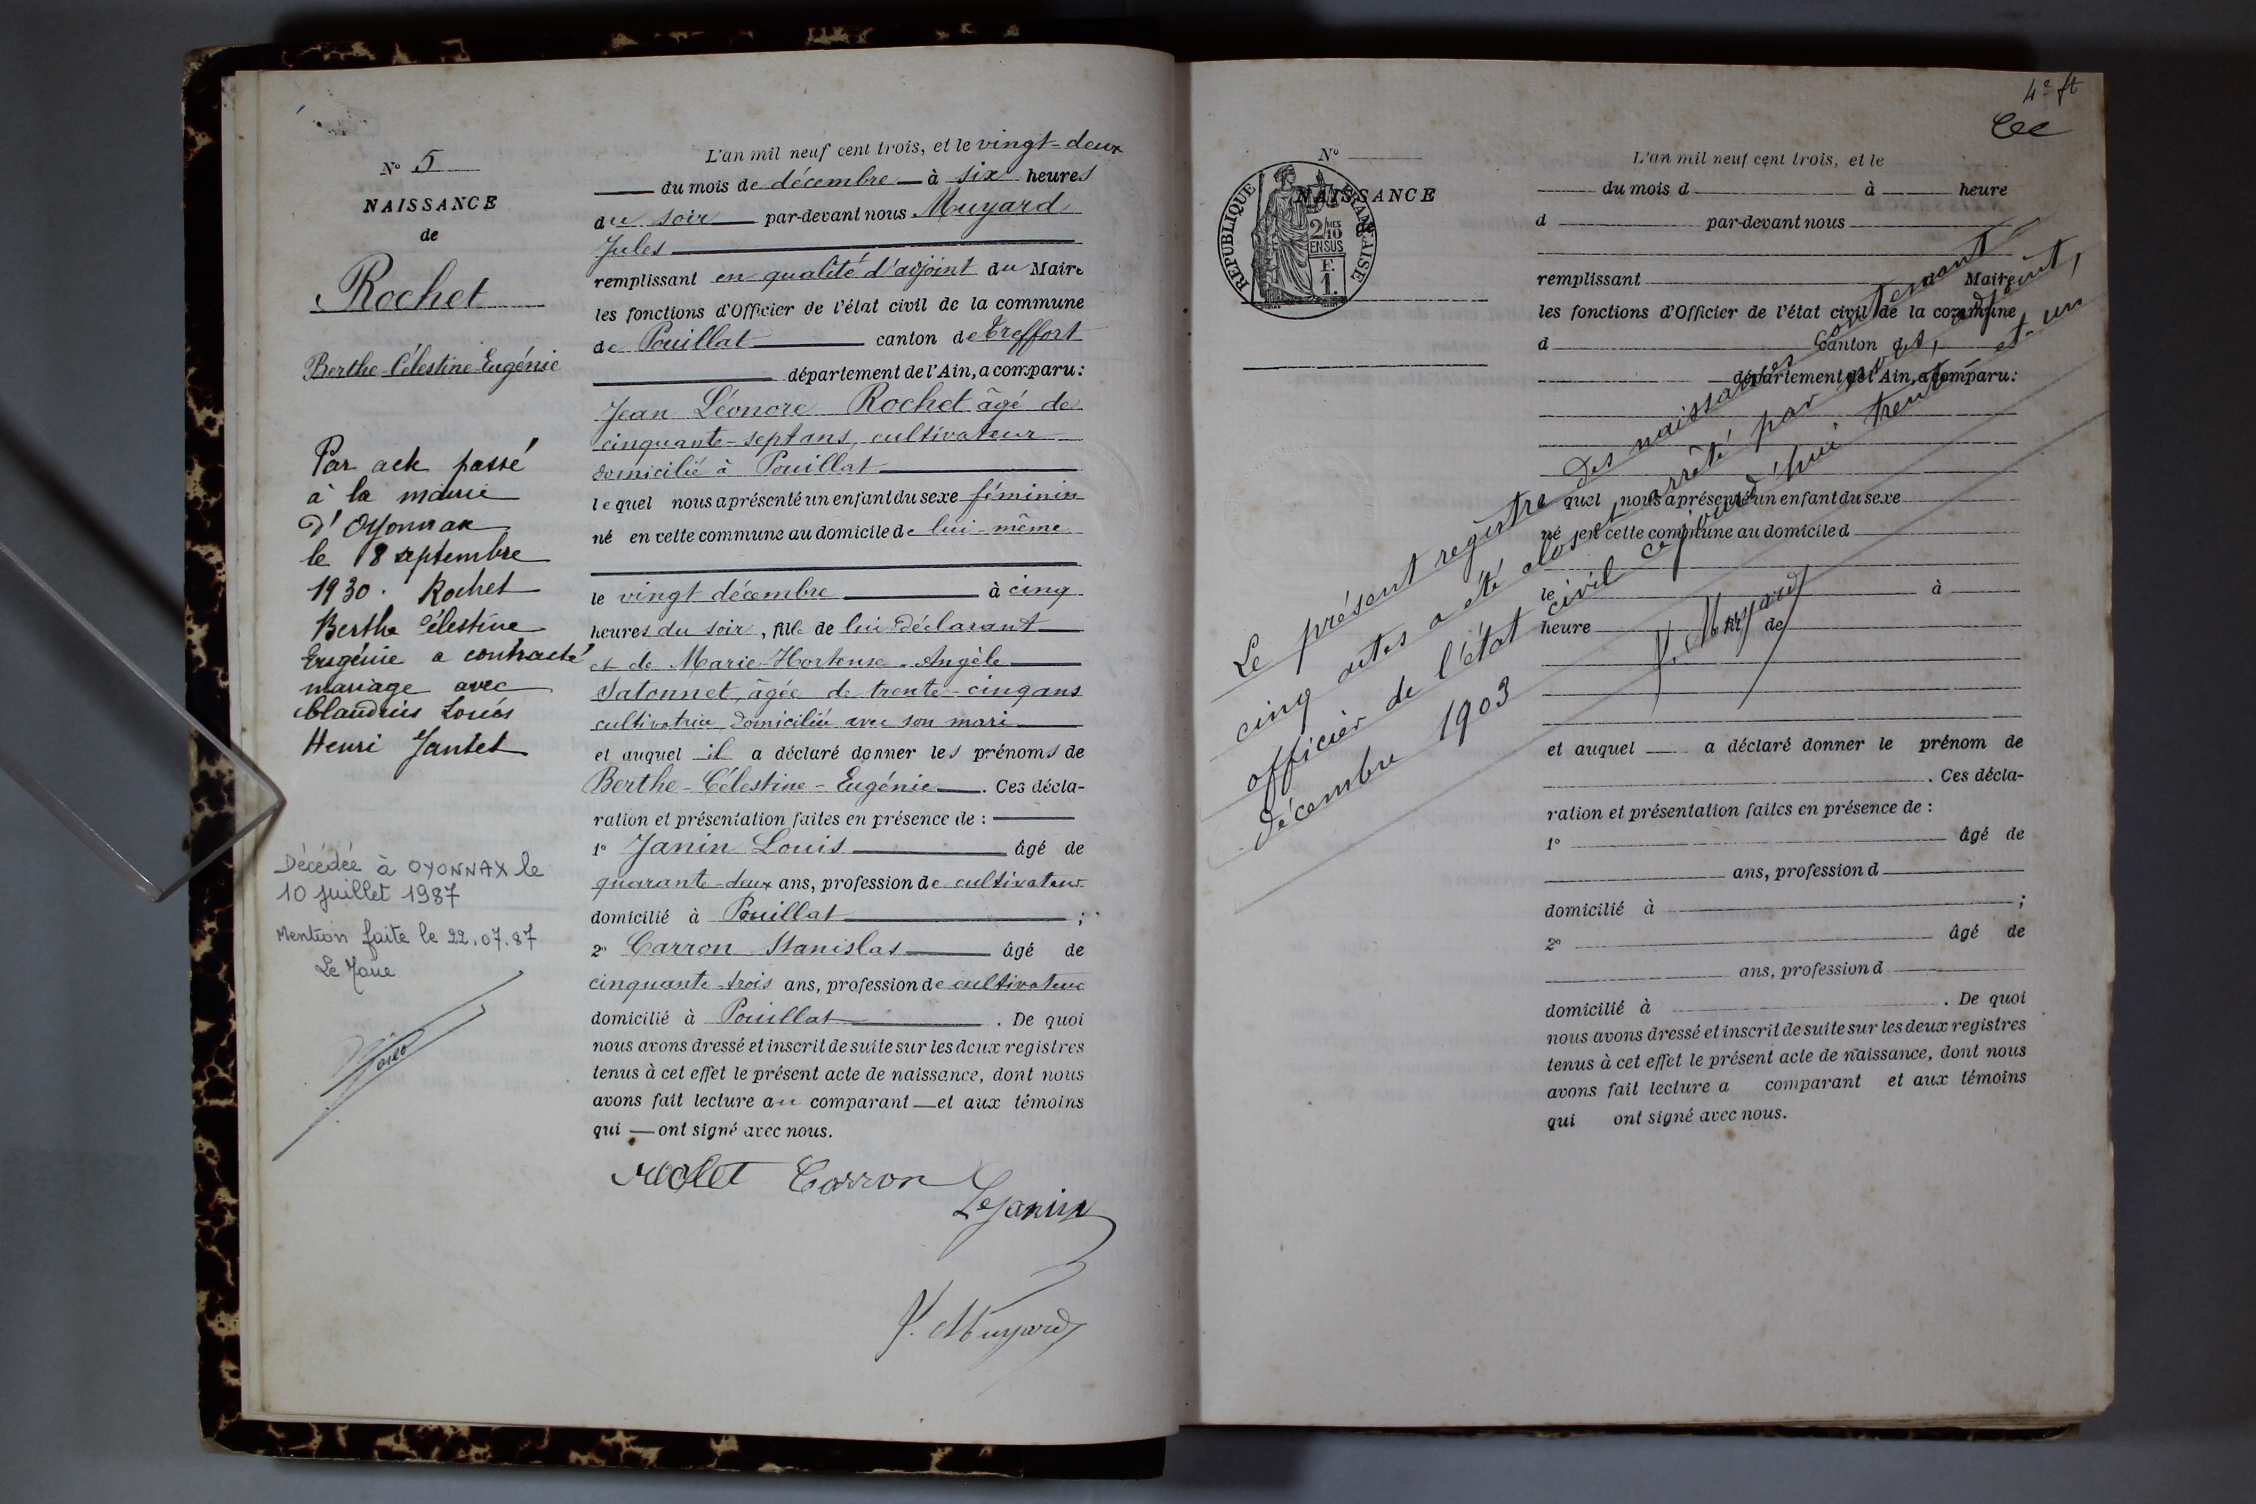 N° 5
NAISSANCE
de
Rochet
Berthe-Célestine-Eugénie
Par acte passé
à la mairie
d'Oyonnax
le 18 septembre
1930. Rochet
Berthe Célestine
Eugénie a contracté
mariage avec
Claudius Louis
Henri Jantet
Décédée à OYONNAX le
10 juillet 1987
Mention faite le 22.07.87
L'an mil neuf cent trois, et le vingt-deux
du mois de décembre à six heures
du soir par-devant nous Muyard
Jules
remplissant en qualité d'adjoint du Maire
les fonctions d'Officier de l'état civil de la commune
de Pouillat canton de Treffort
département de l'Ain, a comparu:
Jean Léonore Rochet âgé de
cinquante-sept ans, cultivateur
domicilié à Pouillat
lequel nous a présenté un enfant du sexe féminin
né en cette commune au domicile de lui-même
le vingt décembre à cinq
heures du soir, fille de lui déclarant
et de Marie-Hortense-Angèle
Satonnet, âgée de trente-cinq ans
cultivatrice domiciliée avec son mari
et auquel il a déclaré donner les prénoms de
Berthe-Célestine-Eugénie. Ces décla-
ration et présentation faites en présence de :
1° Janin Louis âgé de
quarante-deux ans, profession de cultivateur
domicilié à Pouillat ;
2° Carron Stanislas âgé de
cinquante-trois ans, profession de cultivateur
domicilié à Pouillat. De quoi
nous avons dressé et inscrit de suite sur les deux registres
tenus à cet effet le présent acte de naissance, dont nous
avons fait lecture au comparant et aux témoins
qui ont signé avec nous.
Rochet Carron
Ls Janin
J. Muyard
4e ft
N°
NAISSANCE
REPUBLIQUE FRANÇAISE
2/10
EN SUS
F.
1.
L'an mil neuf cent trois, et le
du mois d à heure
d par-devant nous
remplissant Maire
les fonctions d'Officier de l'état civil de la commune
d canton d
département de l'Ain, a comparu:
quel nous a présenté un enfant du sexe
né en cette commune au domicile d
le à
heure fil de
et auquel a déclaré donner le prénom de
. Ces décla-
ration et présentation faites en présence de :
1° âgé de
ans, profession d
domicilié à ;
2° âgé de
ans, profession d
domicilié à . De quoi
nous avons dressé et inscrit de suite sur les deux registres
tenus à cet effet le présent acte de naissance, dont nous
avons fait lecture a comparant et aux témoins
qui ont signé avec nous.
Le présent registre des naissances contenant
cinq actes a été clos et arrêté par nous, adjoint,
officier de l'état civil ce jourd'hui trente-et-un
décembre 1903
J. Muyard